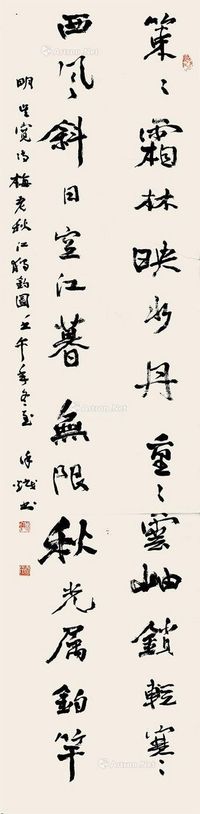 策〻霜林映水丹重〻雲岫鎖輕寒
西风斜日空江暮無限秋光属釣竿
明吴寬诗梅老秋江獨釣圖壬午年冬至